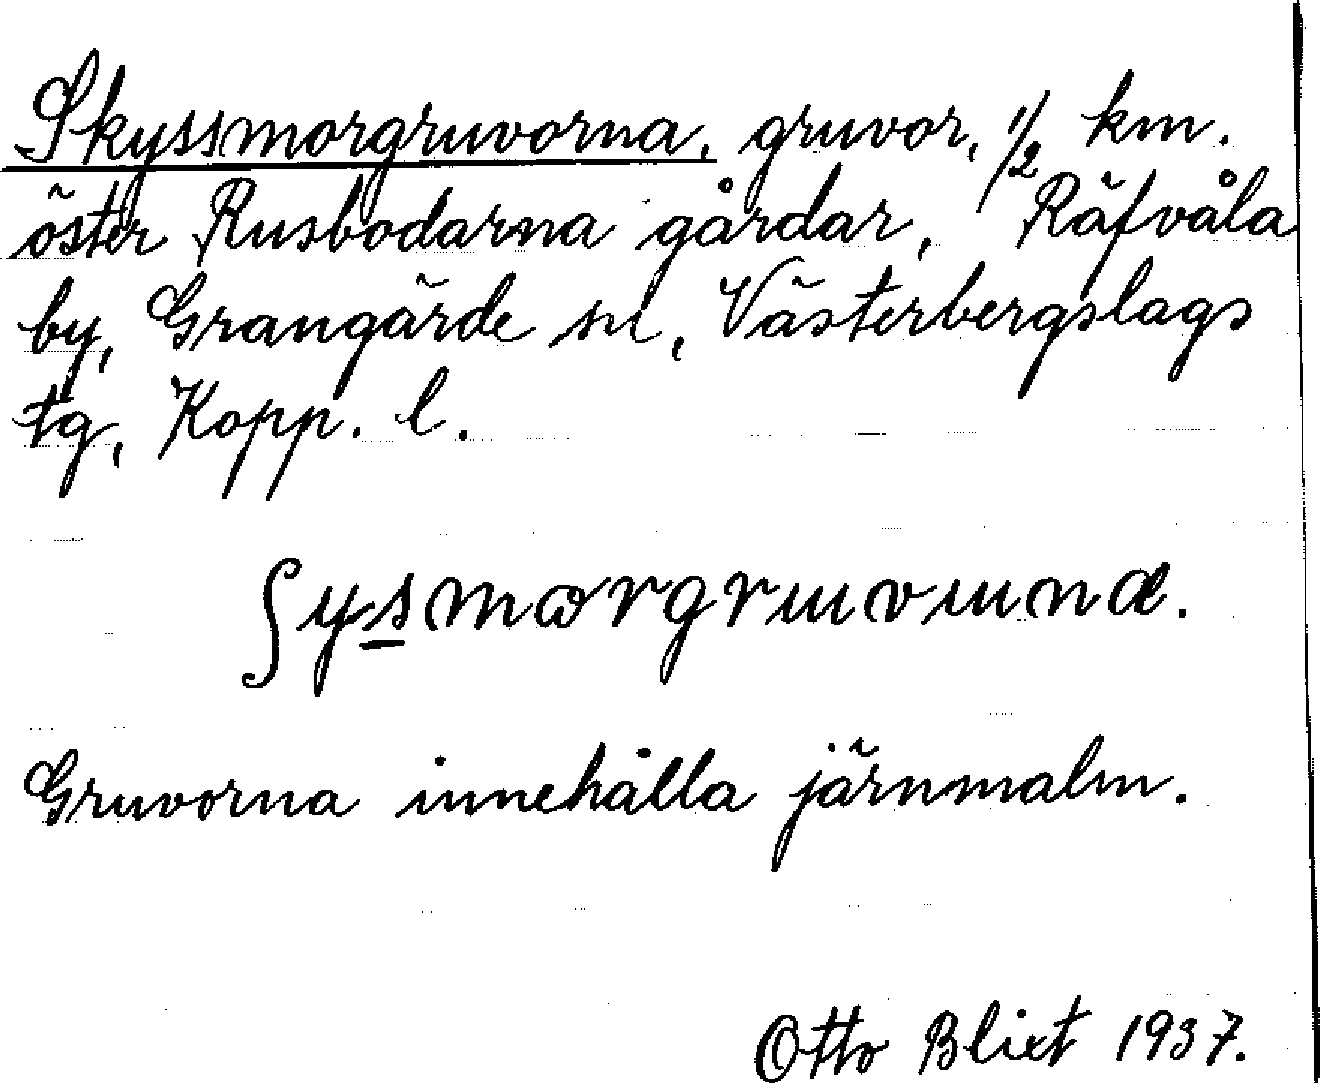 Skyssmorgruvorna, gruvor, 1/2 km.
öster Rusbodarna gårdar, Räfvåla
by, Grangärde sn, Västerbergslags
tg, Kopp. l.
ʃysmωrgruvuna.
Gruvorna innehålla järnmalm.
Otto Blixt 1937.